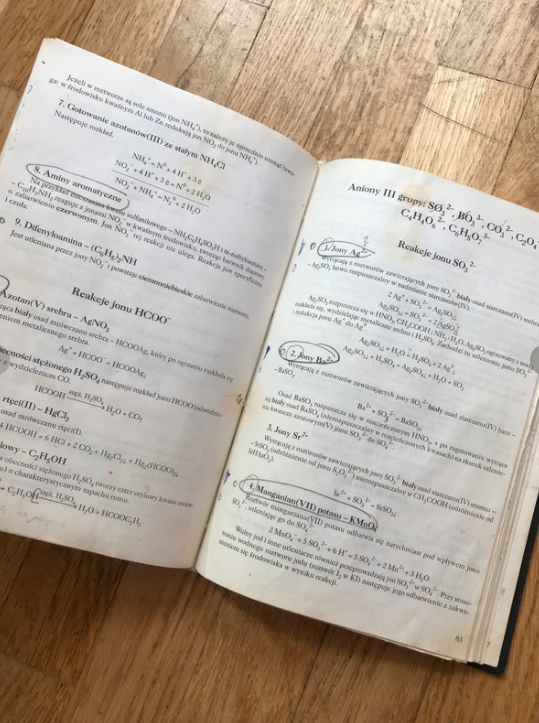 Jeżeli w roztworze są sole amonu (jon NH₄⁺), to należy je uprzednio usunąć (uwa-
ga: w środowisku kwaśnym Al lub Zn redukują jon NO₂⁻ do jonu NH₄⁺).
7. Gotowanie azotanów(III) ze stałym NH₄Cl
Następuje rozkład.
NO₂⁻ + NH₄⁺ → N₂⁰ + 2 H₂O
8. Aminy aromatyczne
Na przykład mieszanina kwasu sulfanilowego – NH₂C₆H₄SO₃H i α-naftyloaminy –
– C₁₀H₇NH₂ reaguje z jonami NO₂⁻ w kwaśnym środowisku, tworząc barwnik
o zabarwieniu czerwonym. Jon NO₃⁻ tej reakcji nie ulega. Reakcja jest specyficzna
i czuła.
9. Difenyloamina – (C₆H₅)₂NH
Jest utleniana przez jony NO₂⁻ i powstaje ciemnoniebieskie zabarwienie roztworu.
Reakcje jonu HCOO⁻
Azotan(V) srebra – AgNO₃
biały osad mrówczanu srebra – HCOOAg, który po ogrzaniu rozkłada się
metalicznego srebra.
Ag⁺ + HCOO⁻ → HCOOAg↓
stężonego H₂SO₄ następuje rozkład jonu HCOO⁻
z wydzieleniem CO.
HCOOH stęż. H₂SO₄ H₂O + CO↑
rtęci(II) – HgCl₂
osad mrówczanu rtęci(I).
C₂H₅OH
obecności stężonego H₂SO₄ tworzy ester etylowy kwasu
o charakterystycznym zapachu rumu.
stęż. H₂SO₄ H₂O + HCOOC₂H₅
Aniony III grupy: SO₃²⁻, BO₃³⁻, CO₃²⁻, C₂O₄²⁻
C₄H₄O₆²⁻, C₆H₅O₇³⁻
Reakcje jonu SO₃²⁻
1. Jony Ag⁺
Wytrącają z roztworów zawierających jony SO₃²⁻ biały osad siarczanu(IV) srebra
– Ag₂SO₃ łatwo rozpuszczalny w nadmiarze siarczanów(IV).
2 Ag⁺ + SO₃²⁻ → Ag₂SO₃↓
Ag₂SO₃↓ + SO₃²⁻ → 2[AgSO₃]⁻
Ag₂SO₃ rozpuszcza się w HNO₃, CH₃COOH i NH₃·H₂O. Ag₂SO₃ ogrzewany z wodą
rozkłada się, wydzielając metaliczne srebro i H₂SO₄. Zachodzi tu utlenienie jonu SO₃²⁻
i redukcja jonu Ag⁺ do Ag⁰.
Ag₂SO₃↓ + H₂O → H₂SO₄ + 2 Ag↓
Ag₂SO₃↓ + H₂SO₄ → Ag₂SO₄↓ + H₂O + SO₂
2. Jony Ba²⁺
Wytrącają z roztworów zawierających jony SO₃²⁻ biały osad siarczanu(IV) baru –
– BaSO₃.
Ba²⁺ + SO₃²⁻ → BaSO₃↓
Osad BaSO₃ rozpuszcza się w rozcieńczonym HNO₃, a po zagotowaniu wytrąca
się biały osad BaSO₄ (nierozpuszczalny w rozcieńczonych kwasach) na skutek utlenie-
nia kwasem azotowym(V) jonu SO₃²⁻ do SO₄²⁻.
3. Jony Sr²⁺
Wytrącają z roztworów zawierających jony SO₃²⁻ biały osad siarczanu(IV) strontu –
– SrSO₃ (odróżnienie od jonu S₂O₃²⁻) nierozpuszczalny w CH₃COOH (odróżnienie od
Sr²⁺ + SO₃²⁻ → SrSO₃↓
4. Manganian(VII) potasu – KMnO₄
Roztwór manganianu(VII) potasu odbarwia się natychmiast pod wpływem jonu
SO₃²⁻, utleniając go do SO₄²⁻.
2 MnO₄⁻ + 5 SO₃²⁻ + 6 H⁺ → 5 SO₄²⁻ + 2 Mn²⁺ + 3 H₂O
Wolny jod i inne utleniacze również przeprowadzają jon SO₃²⁻ w SO₄²⁻. Przy stoso-
waniu wodnego roztworu jodu (roztwór I₂ w KI) następuje jego odbarwienie z zakwa-
szeniem się środowiska w wyniku reakcji.
83